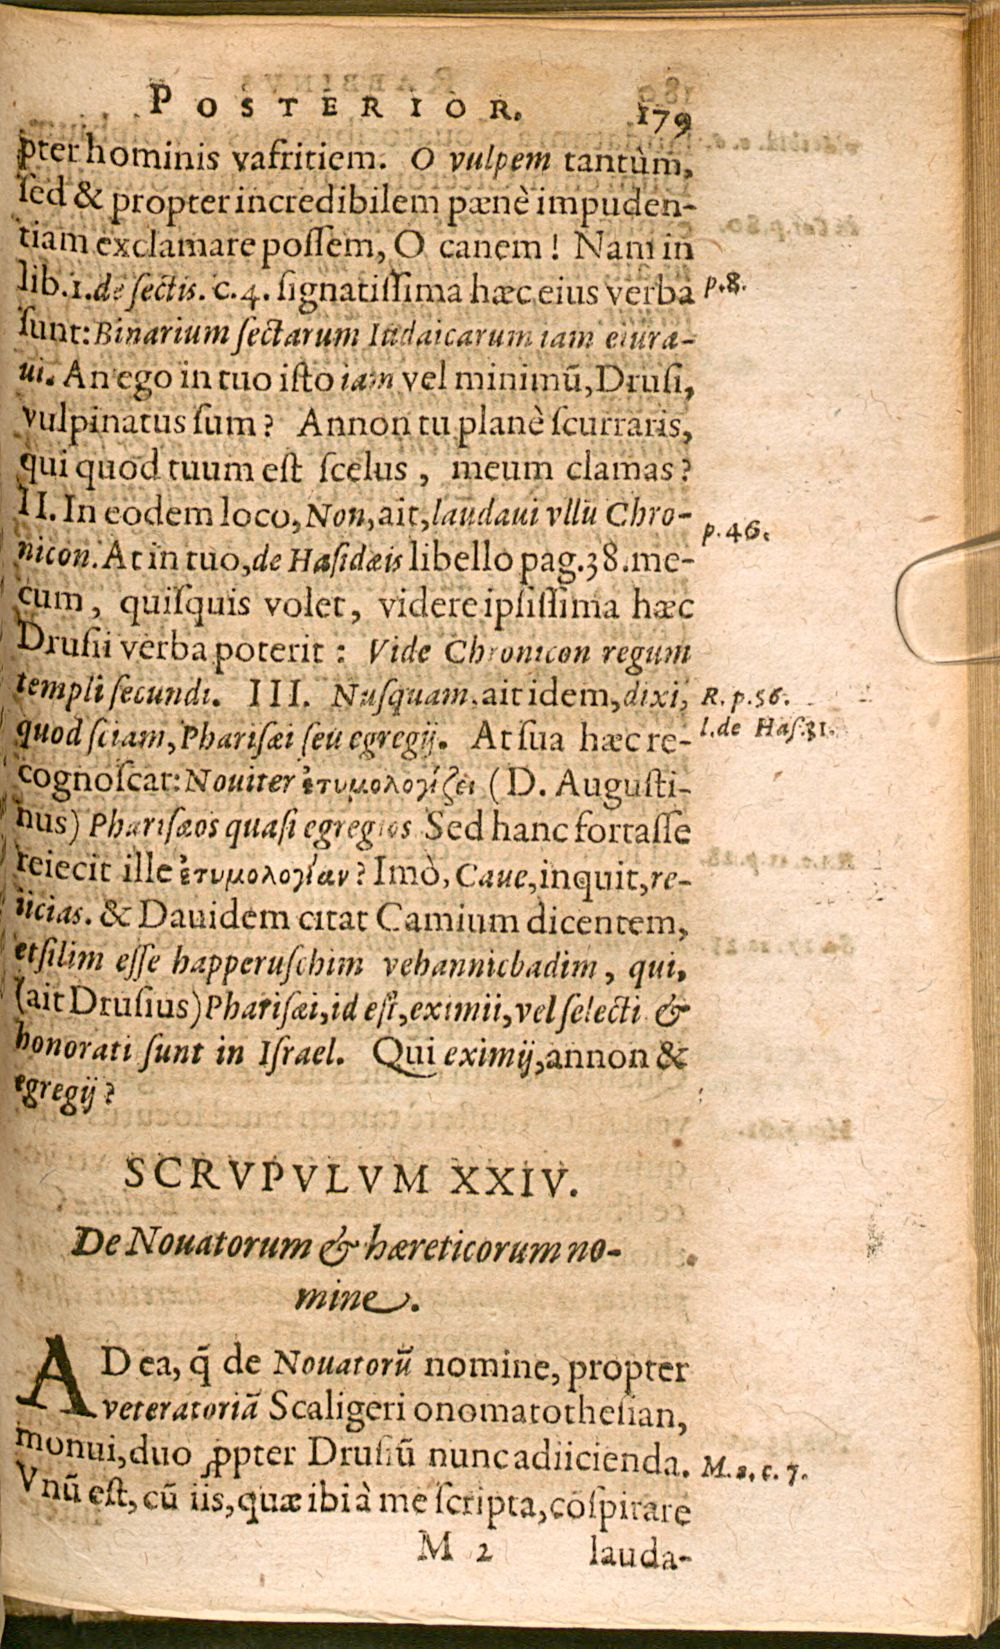 POSTERIOR. 179
pter hominis vafritiem. O vulpem tantùm,
sed & propter incredibilem pænè impuden-
tiam exclamare possem, O canem! Nam in
lib. 1. de sectis. c. 4. signatissima hæc eius verba p. 8.
sunt: Binarium sectarum Iudaicarum iam eiura-
ui. An ego in tuo isto iam vel minimū, Drusi,
vulpinatus sum? Annon tu planè scurraris,
qui quod tuum est scelus, meum clamas?
II. In eodem loco, Non, ait, laudaui vllū Chro- p. 46.
nicon. At in tuo, de Hasidæis libello pag. 38. me-
cum, quisquis volet, videre ipsissima hæc
Drusii verba poterit: Vide Chronicon regum
templi secundi. III. Nusquam, ait idem, dixi, R. p. 56.
quod sciam, Pharisæi seu egregij. At sua hæc re- l. de Has. 31.
cognoscat: Nouiter ἐτυμολογίζει (D. Augusti-
nus) Pharisæos quasi egregios Sed hanc fortasse
reiecit ille ἐτυμολογίαν? Imò, Caue, inquit, re-
iicias. & Dauidem citat Camium dicentem,
etsilim esse happeruschim vehannicbadim, qui,
(ait Drusius) Pharisæi, id est, eximii, vel selecti &
honorati sunt in Israel. Qui eximij, annon &
egregij?
SCRVPVLVM XXIV.
De Nouatorum & hæreticorum no-
mine.
AD ea, q̃ de Nouatorū nomine, propter
veteratoriā Scaligeri onomatothesian,
monui, duo ꝓpter Drusiū nunc adiicienda. M. 2, c. 7.
Vnū est, cū iis, quæ ibi à me scripta, cōspirare
M 2 lauda-